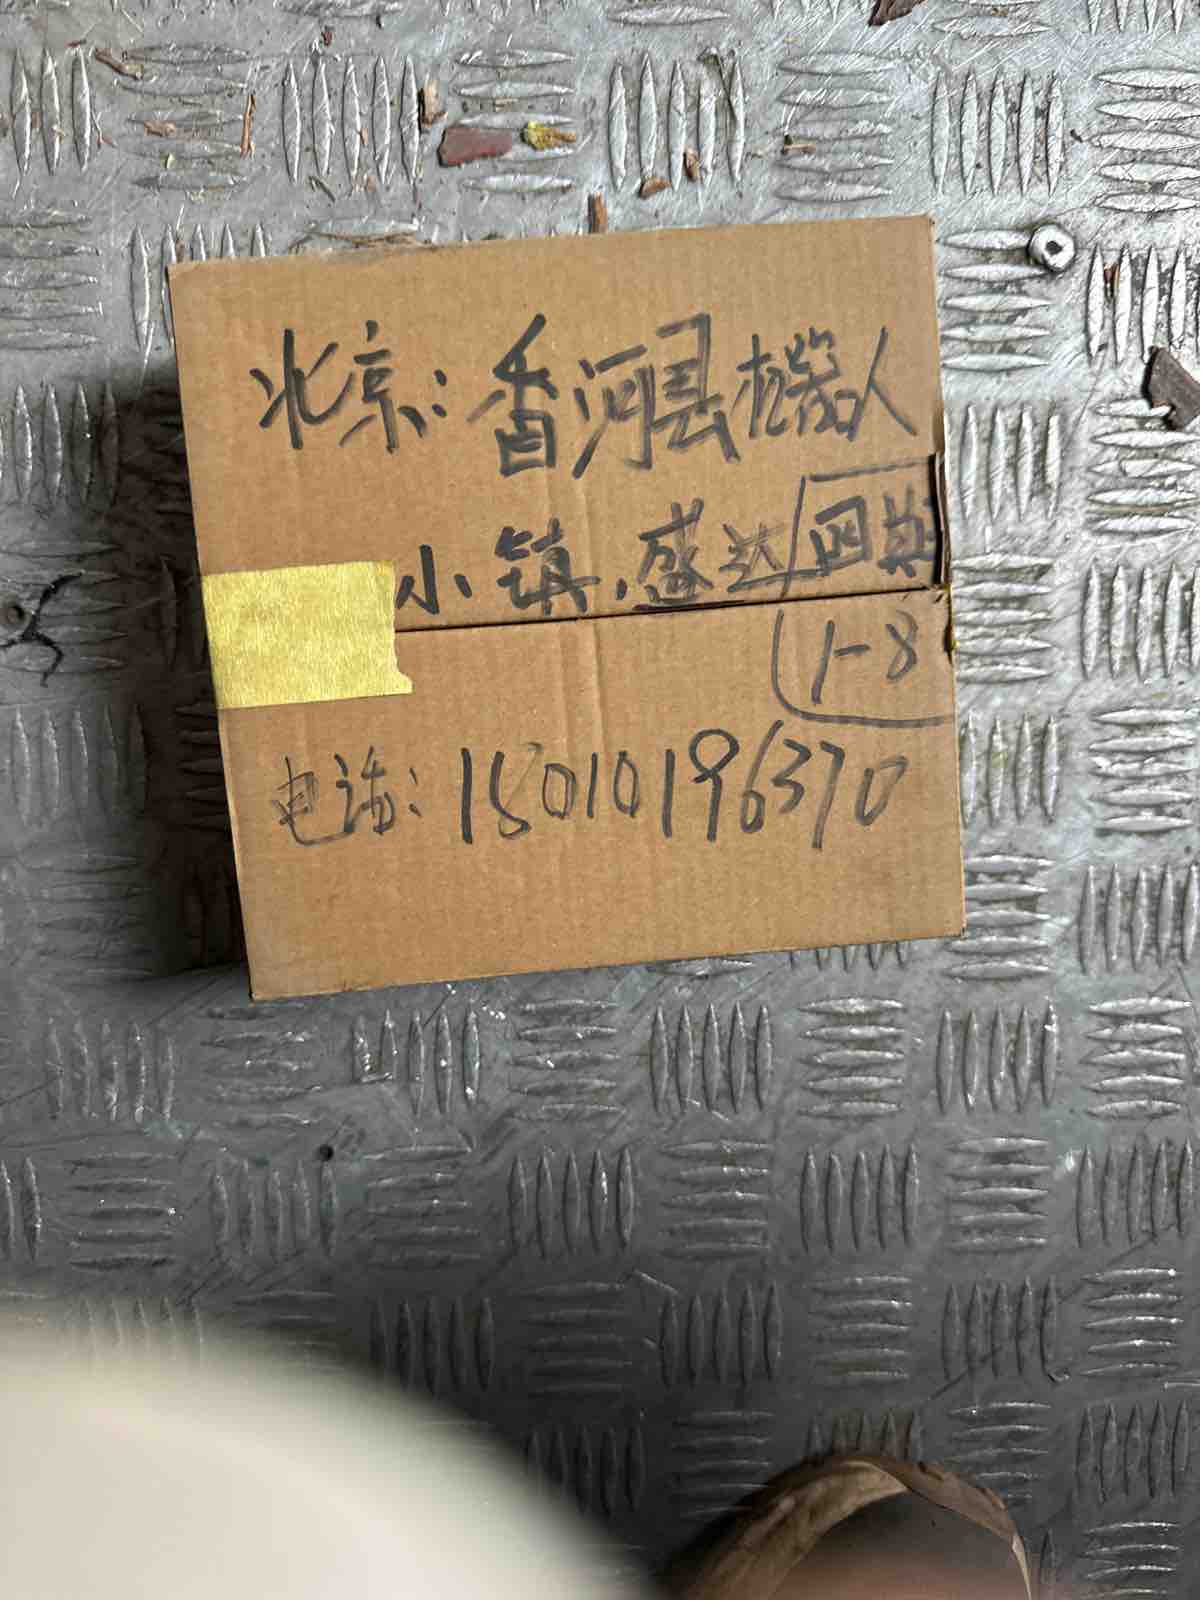 北京：香河县机器人
小镇，盛达四期
1-8
电话：15010196370